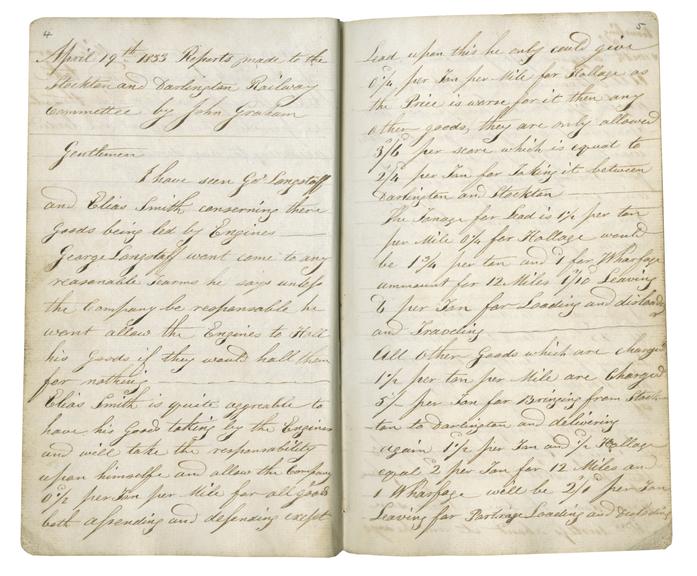 4
April 19th 1833 Reports made to the
Stockton and Darlington Railway
Committee by John Graham
Gentlemen
I have seen Geo Langstaff
and Elias Smith conserning there
Goods being led by Engines
George Langstaff wont come to any
reasonable tearms he says unless
the Company be responsable he
wont allow the Engines to Hall
his Goods if they would hall them
for nothing
Elias Smith is quite aggreable to
have his Goods taking by the Engines
and will take the responsability
upon himselfe and allow the Company
0½ per Ton per Mile for all goods
both assending and desending exsept
5
Lead upon this he only could give
0¼ per Ton per Mile for Hollage as
the Price is warse for it then any
other goods, they are only allowed
3/6 per score which is equal to
2¼ per Ton for taking it between
Darlington and Stockton
The Tonage for Lead is 1½ per ton
per Mile 0¼ for Hollage would
be 1¾ per ton and 1 for Wharfage
ammount for 12 Miles 1/10 Leaving
per Ton for Loading and disloading
and Traveling
All other Goods which are charged
1½ per ton per Mile are Charged
5/ per Ton for Bringing from Stock-
ton to Darlington and delivering
again 1½ per Ton and ½ Hollage
equal 2 per Ton for 12 Miles and
1 Wharfage will be 2/6 per Ton
Leaving for Partirage Loading and disloading